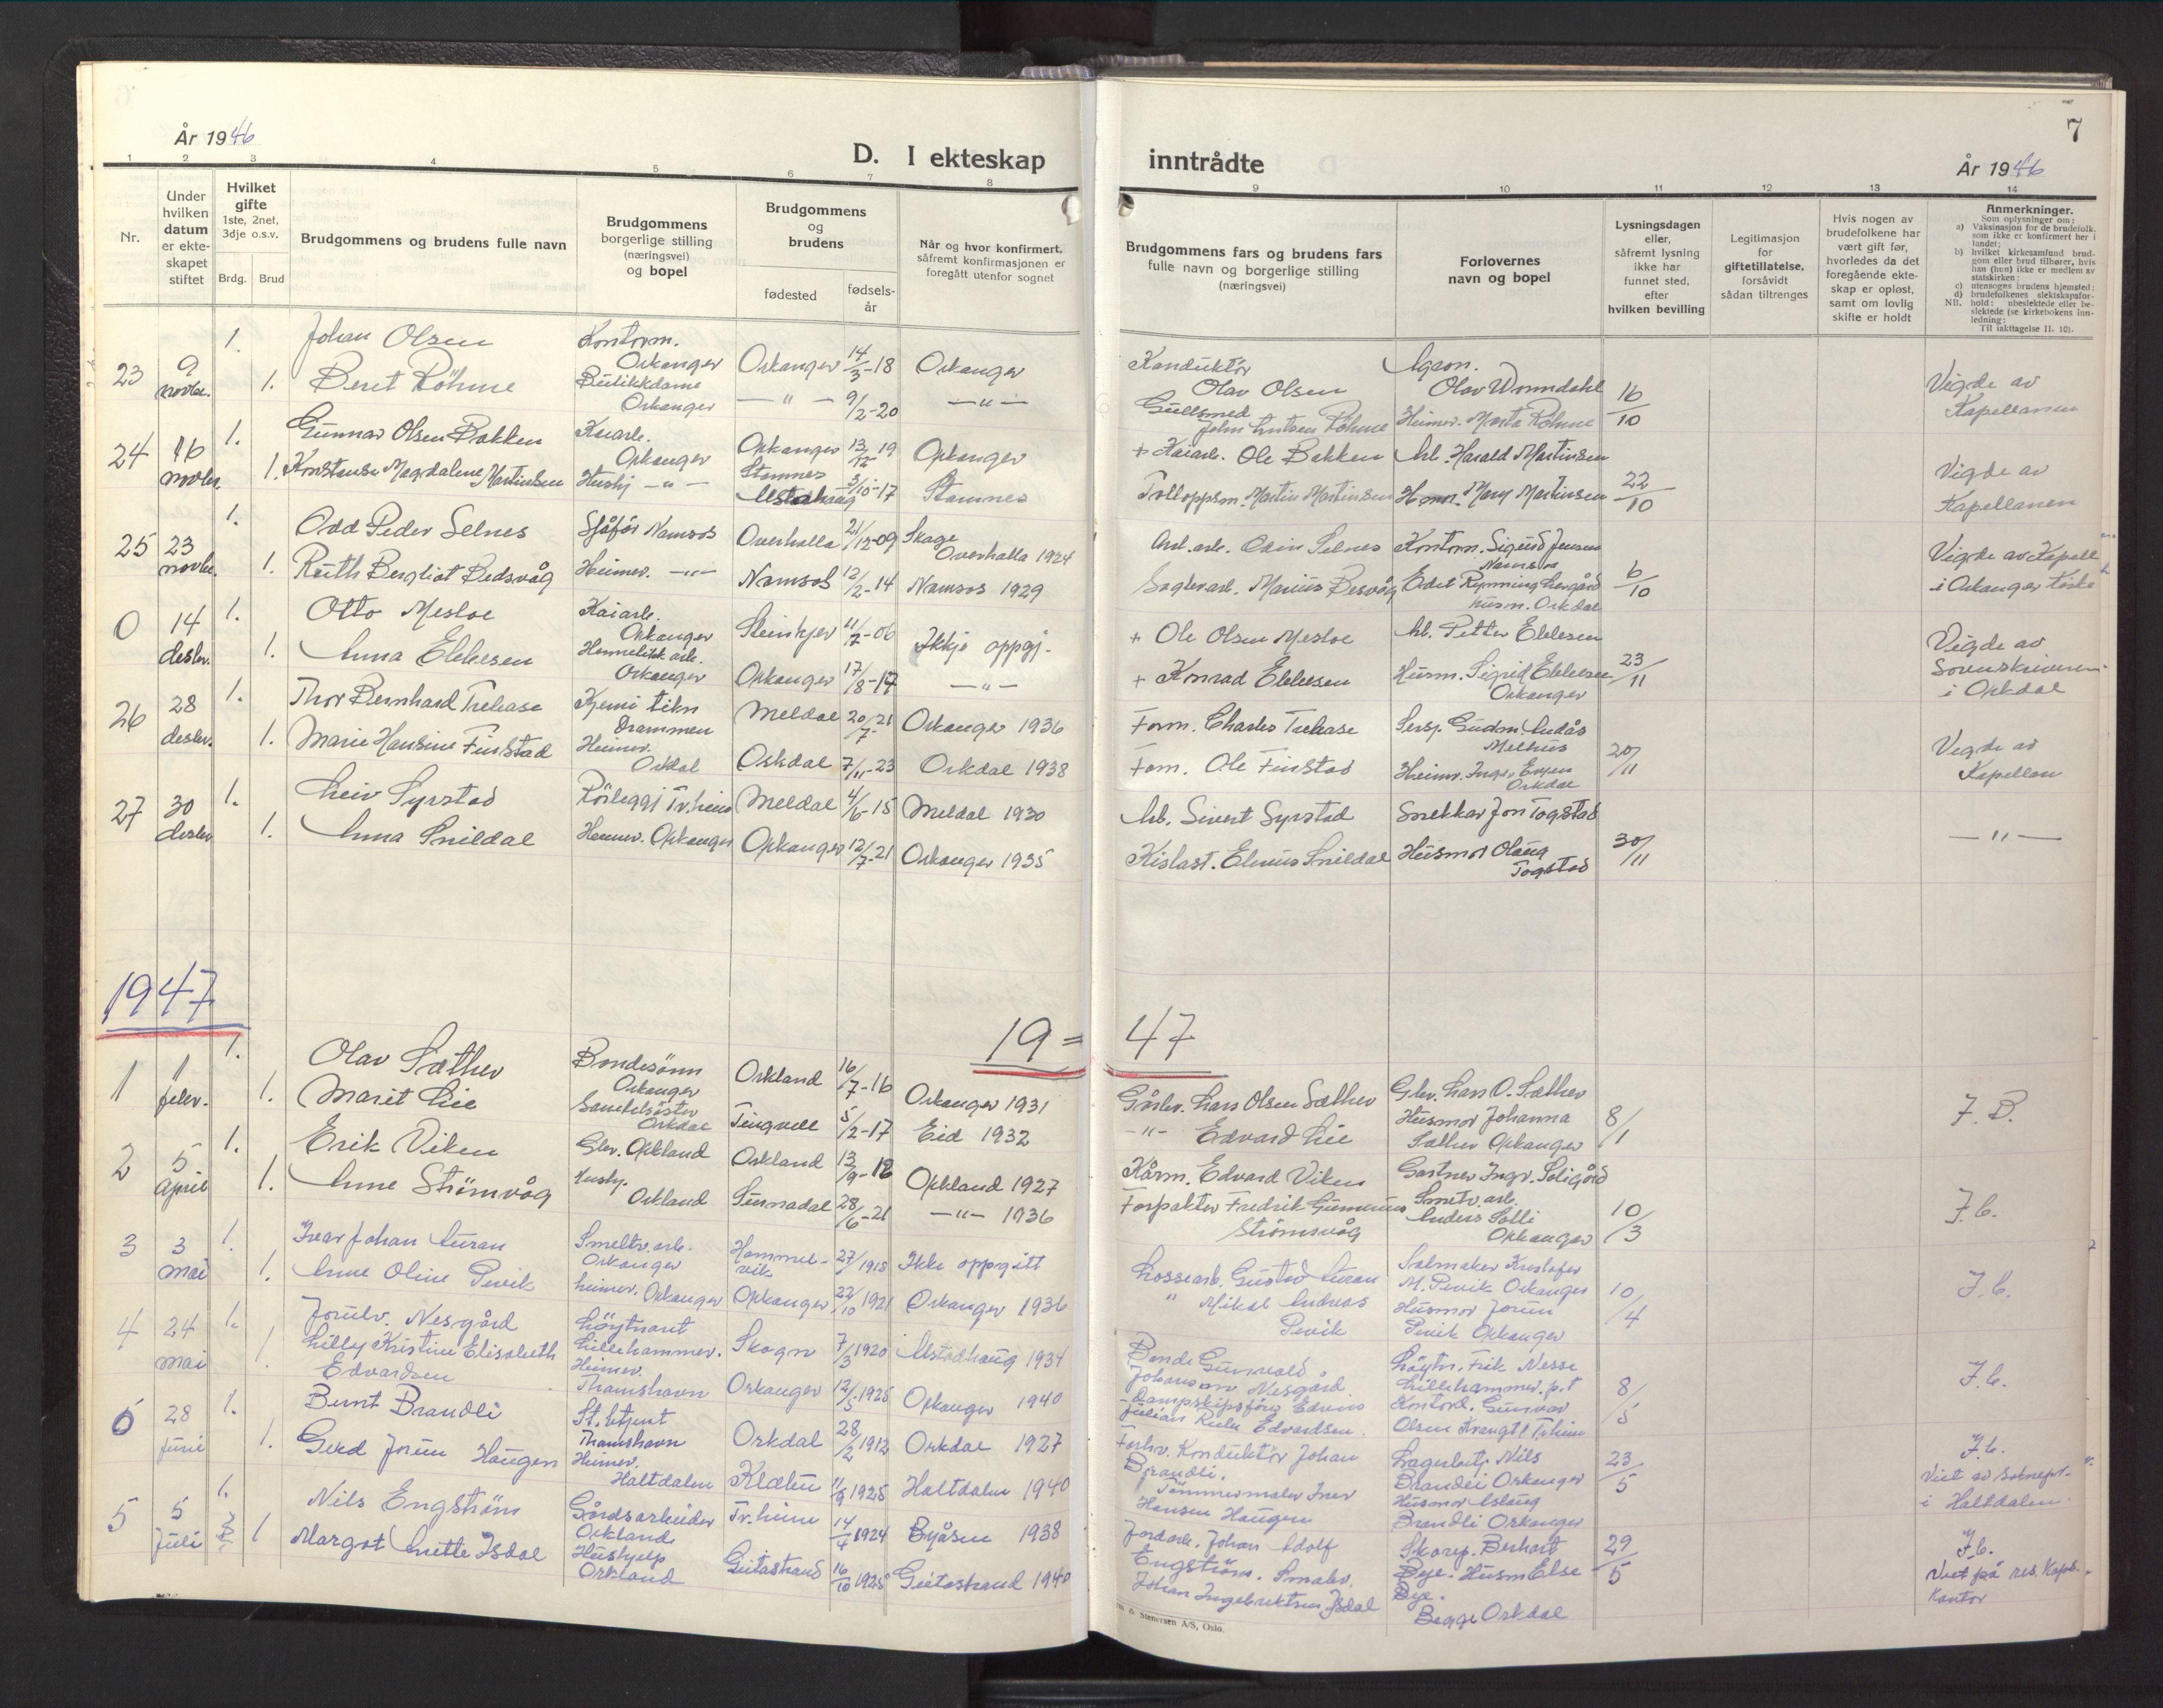 7
År 1946
D. I ekteskap
inntrådte
År 1946
1 2 3 4 5 6 7 8
9 10 11 12 13 14
Nr.
Under hvilken datum er ekteskapet stiftet
Hvilket gifte
1ste, 2net, 3dje o.s.v.
Brdg. Brud
Brudgommens og brudens fulle navn
Brudgommens borgerlige stilling (næringsvei) og bopel
Brudgommens og brudens
fødested
fødselsår
Når og hvor konfirmert, såfremt konfirmasjonen er foregått utenfor sognet
Brudgommens fars og brudens fars fulle navn og borgerlige stilling (næringsvei)
Forlovernes navn og bopel
Lysningsdagen eller, såfremt lysning ikke har funnet sted, efter hvilken bevilling
Legitimasjon for giftetillatelse, forsåvidt sådan tiltrenges
Hvis nogen av brudefolkene har vært gift før, hvorledes da det foregående ekteskap er opløst, samt om lovlig skifte er holdt
Anmerkninger.
Som oplysninger om:
a) Vaksinasjon for de brudefolk, som ikke er konfirmert her i landet;
b) hvilket kirkesamfund brudgom eller brud tilhører, hvis han (hun) ikke er medlem av statskirken;
c) utensogns brudens hjemsted;
d) brudefolkenes slektskapsforhold: ubeslektede eller beslektede (se kirkebokens innledning:
NB. Til iakttagelse II. 10).
23 9 novbr. 1. Johan Olsen Kontorm. Orkanger Orkanger 14/3-18 Orkanger
1. Beret Röhme Butikkdame Orkanger —"— 9/2-20 —"—
Konduktör Olav Olsen Agron. Olav Wormdahl 16/10 Vigde av Kapellanen
Gullsmed John Knutsen Röhme Heimev. Marta Röhme
24 16 novbr. 1. Gunnar Olsen Bakken Kaiarb. Orkanger Orkanger 13/12 19 Orkanger
1. Konstanse Magdalene Martinsen Hushj —"— Stamnes Alstahaug 3/10-17 Stamnes
+ Kaiarb. Ole Bakken Arb. Harald Martinsen
Tolloppsm. Martin Martinsen Mary Martinsen 22/10 Vigde av Kapellanen
25 23 novbr. 1. Odd Peder Selnes Sjåför Namsos Overhalla 21/12-09 Skage Overhalla 1924
1. Ruth Bergliot Bedsvåg Heimev. —"— Namsos 12/2-14 Namsos 1929
Anl. arb. Odin Selnes Kontorm. Sigurd Jensen Namsos
Sagbr.arb. Marius Besvåg Edit Rynning husm. Orkdal 6/10 Vigde av Kapell i Orkanger
0 14 desbr. 1. Otto Mesloe Kaiarb. Orkanger Steinkjer 11/2-06 Ikkje oppgj.
1. Anna Ellevsen Orkanger Orkanger 17/8-17 —"—
+ Ole Olsen Mesloe Arb. Petter Ellevsen
+ Konrad Ellevsen Husm. Sigrid Ellevsen Orkanger 23/11 Vigde av Sorenskriveren i Orkdal
26 28 desbr. 1. Thor Bernhard Trehase Kjemi tekn Drammen Meldal 20/7-21 Orkanger 1936
1. Marie Hansine Finstad Heimev. Orkdal Orkdal 7/11-23 Orkdal 1938
Form. Charles Trehase Melhus
Form. Ole Finstad Heimv. Orkdal 20/11 Vigde av Kapellan
27 30 desbr 1. Leiv Syrstad Rörleggj Tr.heim Meldal 4/6-15 Meldal 1930
1. Anna Snildal Heimev. Orkanger Orkanger 12/7-21 Orkanger 1935
Arb. Sivert Syrstad Snekkar Jon Togstad
Kislast. Elenus Snildal Husmor Olaug Togstad 30/11 —"—
1947
19 = 47
1 1 febr. 1. Olav Sæther Bondesönn Orkanger Orkland 16/7-16 Orkanger 1931
1. Marit Lie Orkdal Tingvoll 5/2-17 Eid 1932
Gårbr. Lars Olsen Sæther Gbr. Lars O. Sæther
—"— Edvard Lie Husmor Johanna Sæther Orkanger 8/1 F. B.
2 5 april 1. Erik Viken Gbr. Orkland Orkland 13/9-12 Orkland 1927
1. Anne Strömvåg Hushj. Orkland Surnadal 28/6-21 —"— 1936
Kårm. Edvard Viken Gartner Ingv. Soligård
Forpakter Fredrik Strömsvåg Smeltv. arb. Anders Solli Orkanger 10/3 F.b.
3 3 mai 1. Ivar Johan Auran Smeltv. arb. Orkanger Hommelvik 27/1 1918 Ikke oppgitt
1. Anne Oline Pevik heimev. Orkanger Orkanger 22/10 1921 Orkanger 1936
Lossearb. Gustav Auran Salmaker Kristofer M. Pevik Orkanger
" Mikal Andreas Pevik Husmor Jorun Pevik Orkanger 10/4 F.b.
4 24 mai 1. Jorulv. Nesgård Löytnant Lillehammer. Skogn 7/3 1920 Alstadhaug 1934
1 Lilly Kristine Elisabeth Edvardsen Heimev. Thamshavn Orkanger 12/5 1925 Orkanger 1940
Bonde Gunvald Johanson Nesgård Löytn. Erik Nesse Lillehammer p.t
Dampskipsförer Edvin Julian Edvardsen. Kontord. Gunvor Olsen 8/5 F.b.
6 28 juni 1. Bernt Brandli St.betjent Thamshavn Orkdal 28/2 1912 Orkdal 1927
1. Gerd Jorun Haugen Heimev. Haltdalen Klæbu 11/9 1925 Haltdalen 1940
Forhv. Konduktör Johan Brandli. Lagerbetj. Nils Brandli Orkanger
Tömmermåler Iver Hansen Haugen Husmor Aslaug Brandli Orkanger 23/5 F.b. Viet av Soknepr. i Haltdalen.
5 5 juli 1. Nils Engström Gårdsarbeider Orkland Tr.heim 14/4 1924 Byåsen 1938
1 Margot Anette Isdal Hushjelp Orkland Geitastrand 16/10 1925 Geitastrand 1940
Jordarb. Johan Adolf Engström. Skorep. Berhart Bye. Husm Else Bye.
Småbr. Johan Ingebriktsen Isdal Begge Orkdal 29/5 F.b. Viet på res. Kapel. Kontor
Stenersen A/S, Oslo.